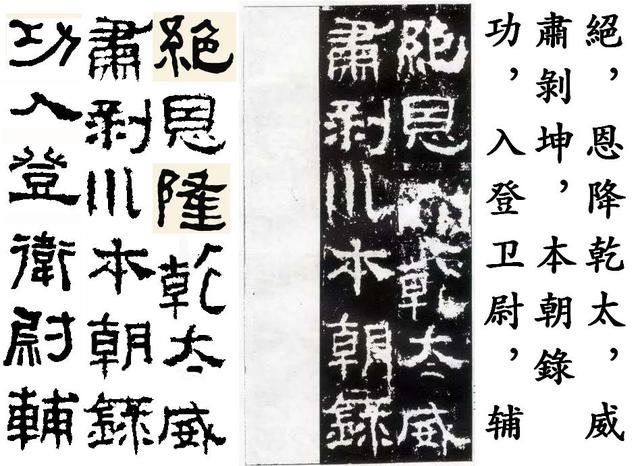 絕，恩降乾太，威
肅剝坤，本朝錄
功，入登卫尉，辅
絕恩乾太威
肅剝川本朝錄
絕恩隆乾太威
肅剝川本朝錄
功入登衛尉輔